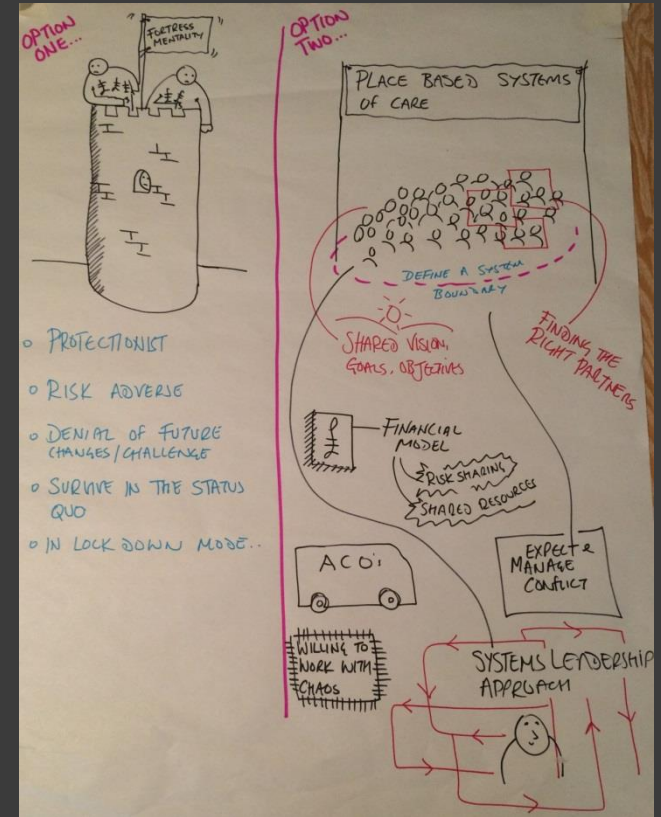 OPTION
ONE...
FORTRESS
MENTALITY
o PROTECTIONIST
o RISK ADVERSE
o DENIAL OF FUTURE
CHANGES/CHALLENGE
o SURVIVE IN THE STATUS
QUO
o IN LOCK DOWN MODE..
OPTION
TWO...
PLACE BASED SYSTEMS
OF CARE
DEFINE A SYSTEM
BOUNDARY
SHARED VISION,
GOALS, OBJECTIVES
FINDING THE
RIGHT PARTNERS
£
FINANCIAL
MODEL
RISK SHARING
SHARED RESOURCES
ACO:
EXPECT &
MANAGE
CONFLICT
WILLING TO
WORK WITH
CHAOS
SYSTEMS LEADERSHIP
APPROACH